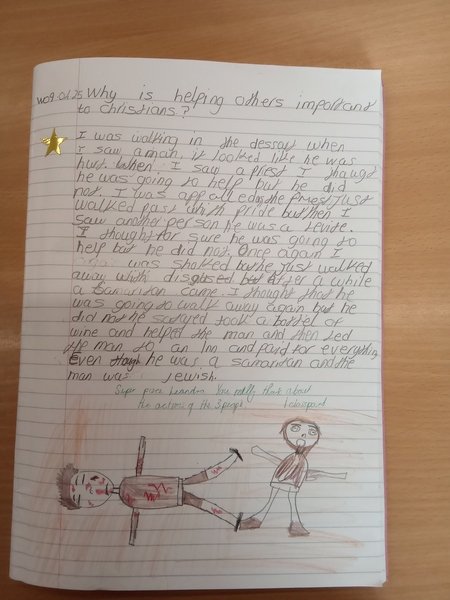 W09.01.25 Why is helping others important
to christians?
I was walking in the dessart when
I saw a man, it looked like he was
hurt. When I saw a priest I thought
he was going to help but he did
not. I was appalled the Priest Just
walked past with pride but then I
saw another person he was a Levite.
I thought for sure he was going to
help but he did not. Once again I
was shoked but he just walked
away with disgosed but after a while
a Samaritan came. I thought that he
was going to walk away again but he
did not he stayed took a bottel of
wine and helped the man and then Led
the man to an Inn and paid for everything
Even though he was a samaritan and the
man was Jewish.
Super piece You really think about
the actions of the 3 people